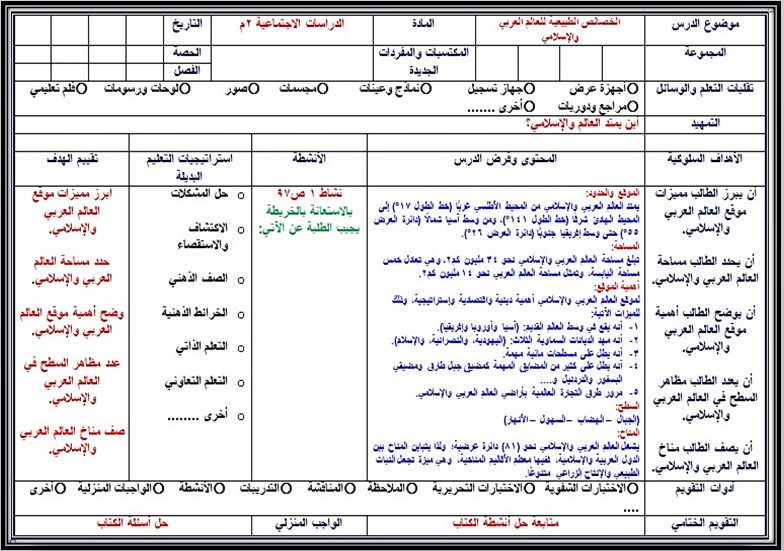 موضوع الدرس
الخصائص الطبيعية للعالم العربي
والإسلامي
المادة
الدراسات الاجتماعية ٢م
التاريخ
المجموعة
المكتسبات والمفردات
الجديدة
الحصة
الفصل
تقنيات التعلم والوسائل
أجهزة عرض
جهاز تسجيل
نماذج وعينات
مجسمات
صور
لوحات ورسومات
فلم تعليمي
مراجع ودوريات
أخرى .......
التمهيد
أين يمتد العالم والإسلامي؟
الأهداف السلوكية
المحتوى وفرض الدرس
الأنشطة
استراتيجيات التعليم
البديلة
تقييم الهدف
أن يبرز الطالب مميزات
موقع العالم العربي
والإسلامي.
أن يحدد الطالب مساحة
العالم العربي والإسلامي.
أن يوضح الطالب أهمية
موقع العالم العربي
والإسلامي.
أن يعدد الطالب مظاهر
السطح في العالم العربي
والإسلامي.
أن يصف الطالب مناخ
العالم العربي والإسلامي.
الموقع والحدود:
يمتد العالم العربي والإسلامي من المحيط الأطلسي غربًا (خط الطول ١٧°) إلى
المحيط الهادئ شرقًا (خط الطول ١٤١°)، ومن وسط آسيا شمالًا (دائرة العرض
٥٥°) حتى وسط إفريقيا جنوبًا (دائرة العرض ٢٦°).
المساحة:
تبلغ مساحة العالم العربي والإسلامي نحو ٣٤ مليون كم٢، وهي تعادل خمس
مساحة اليابسة، وتمثل مساحة العالم العربي نحو ١٤ مليون كم٢.
أهمية الموقع:
لموقع العالم العربي والإسلامي أهمية دينية واقتصادية وإستراتيجية، وذلك
للميزات الآتية:
١- أنه يقع في وسط العالم القديم: (آسيا وأوروبا وإفريقيا).
٢- أنه مهد الديانات السماوية الثلاث: (اليهودية، والنصرانية، والإسلام).
٣- أنه يطل على مسطحات مائية مهمة.
٤- أنه يطل على كثير من المضايق المهمة كمضيق جبل طارق ومضيقي
البسفور والدردنيل و....
٥- مرور طرق التجارة العالمية بأراضي العالم العربي والإسلامي.
السطح:
(الجبال –الهضاب –السهول –الأنهار)
المناخ:
يشغل العالم العربي والإسلامي نحو (٨١) دائرة عرضية؛ ولذا يتباين المناخ بين
الدول العربية والإسلامية، ففيها معظم الأقاليم المناخية، وهي ميزة تجعل النبات
الطبيعي والإنتاج الزراعي متنوعًا.
نشاط ١ ص٩٧
بالاستعانة بالخريطة
يجيب الطلبة عن الآتي:
حل المشكلات
الاكتشاف
والاستقصاء
الصف الذهني
الخرائط الذهنية
التعلم الذاتي
التعلم التعاوني
أخرى ........
ابرز مميزات موقع
العالم العربي
والإسلامي.
حدد مساحة العالم
العربي والإسلامي.
وضح أهمية موقع العالم
العربي والإسلامي.
عدد مظاهر السطح في
العالم العربي
والإسلامي.
صف مناخ العالم العربي
والإسلامي.
أدوات التقويم
الاختبارات الشفوية
الاختبارات التحريرية
الملاحظة
المناقشة
التدريبات
الأنشطة
الواجبات المنزلية
أخرى
....
التقويم الختامي
متابعة حل أنشطة الكتاب
الواجب المنزلي
حل أسئلة الكتاب